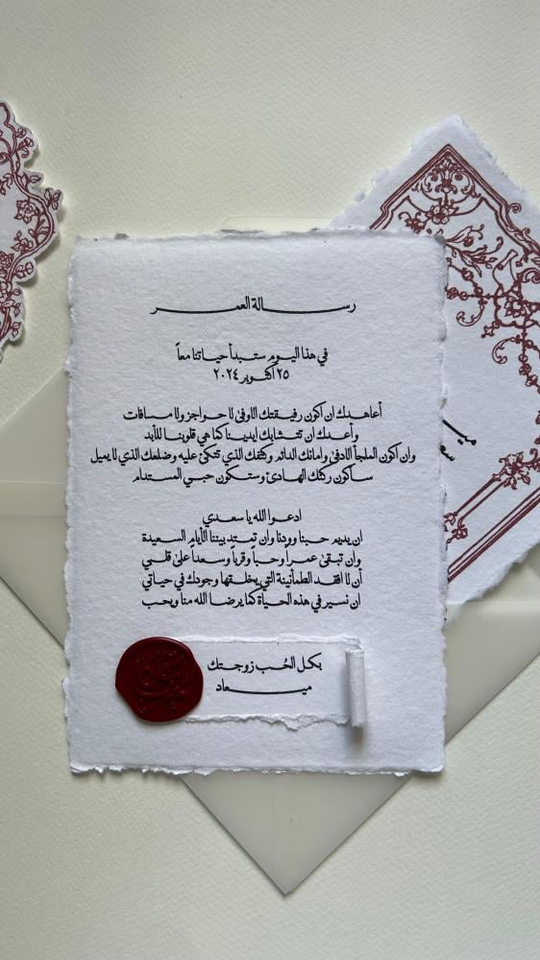 رسالة العمر
في هذا اليوم ستبدأ حياتنا معاً
٢٥ أكتوبر ٢٠٢٤
أعاهدك ان أكون رفيقتك الاوفى لا حواجز ولا مسافات
وأعدك ان تتشابك ايدينا كما هي قلوبنا للأبد
وان اكون الملجأ الادفى وامانك الدائم وكتفك الذي تتكئ عليه وضلعك الذي لا يميل
سأكون ركنك الهادئ وستكون حبي المستدام
ادعوا الله يا سعدي
ان يديم حبنا وودنا وان تمتد بيننا الأيام السعيدة
وان تبقى عمراً وحباً وقرباً وسعداً على قلبي
أن لا افقد الطمأنينة التي يخلقها وجودك في حياتي
ان نسير في هذه الحياة كما يرضا الله منا ويحب
بكل الحُب زوجتك
ميعاد